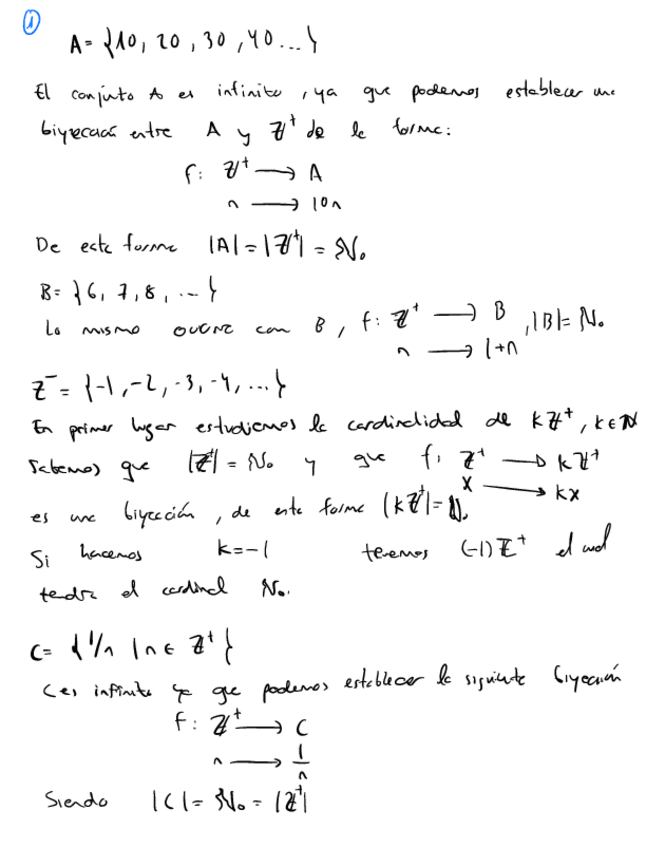 ①
A = {10, 20, 30, 40...}
El conjunto A es infinito, ya que podemos establecer una
biyección entre A y ℤ⁺ de la forma:
f: ℤ⁺ ⟶ A
n ⟶ 10n
De esta forma |A| = |ℤ⁺| = ℵ₀
B = {6, 7, 8, ...}
Lo mismo ocurre con B, f: ℤ⁺ ⟶ B, |B| = ℵ₀
n ⟶ 1+n
ℤ⁻ = {-1, -2, -3, -4, ...}
En primer lugar estudiemos la cardinalidad de kℤ⁺, k∈ℕ
Sabemos que |ℤ⁺| = ℵ₀ y que f: ℤ⁺ ⟶ kℤ⁺
x ⟶ kx
es una biyección, de esta forma |kℤ⁺| = ℵ₀
Si hacemos k=-1 tenemos (-1)ℤ⁺ el cual
tendrá el cardinal ℵ₀.
C = {1/n | n ∈ ℤ⁺}
C es infinito ya que podemos establecer la siguiente biyección
f: ℤ⁺ ⟶ C
n ⟶ 1/n
Siendo |C| = ℵ₀ = |ℤ⁺|